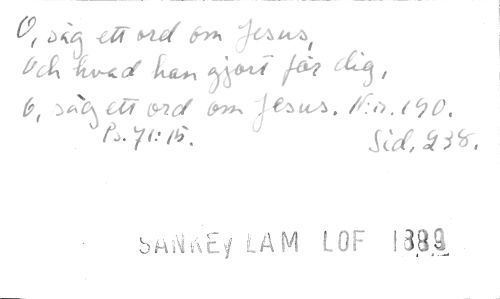 O, säg ett ord om Jesus,
Och hvad han gjort för dig,
O, säg ett ord om Jesus. N:r. 190.
Ps. 71:15. Sid. 238.
SANKEY LAM LOF 1889